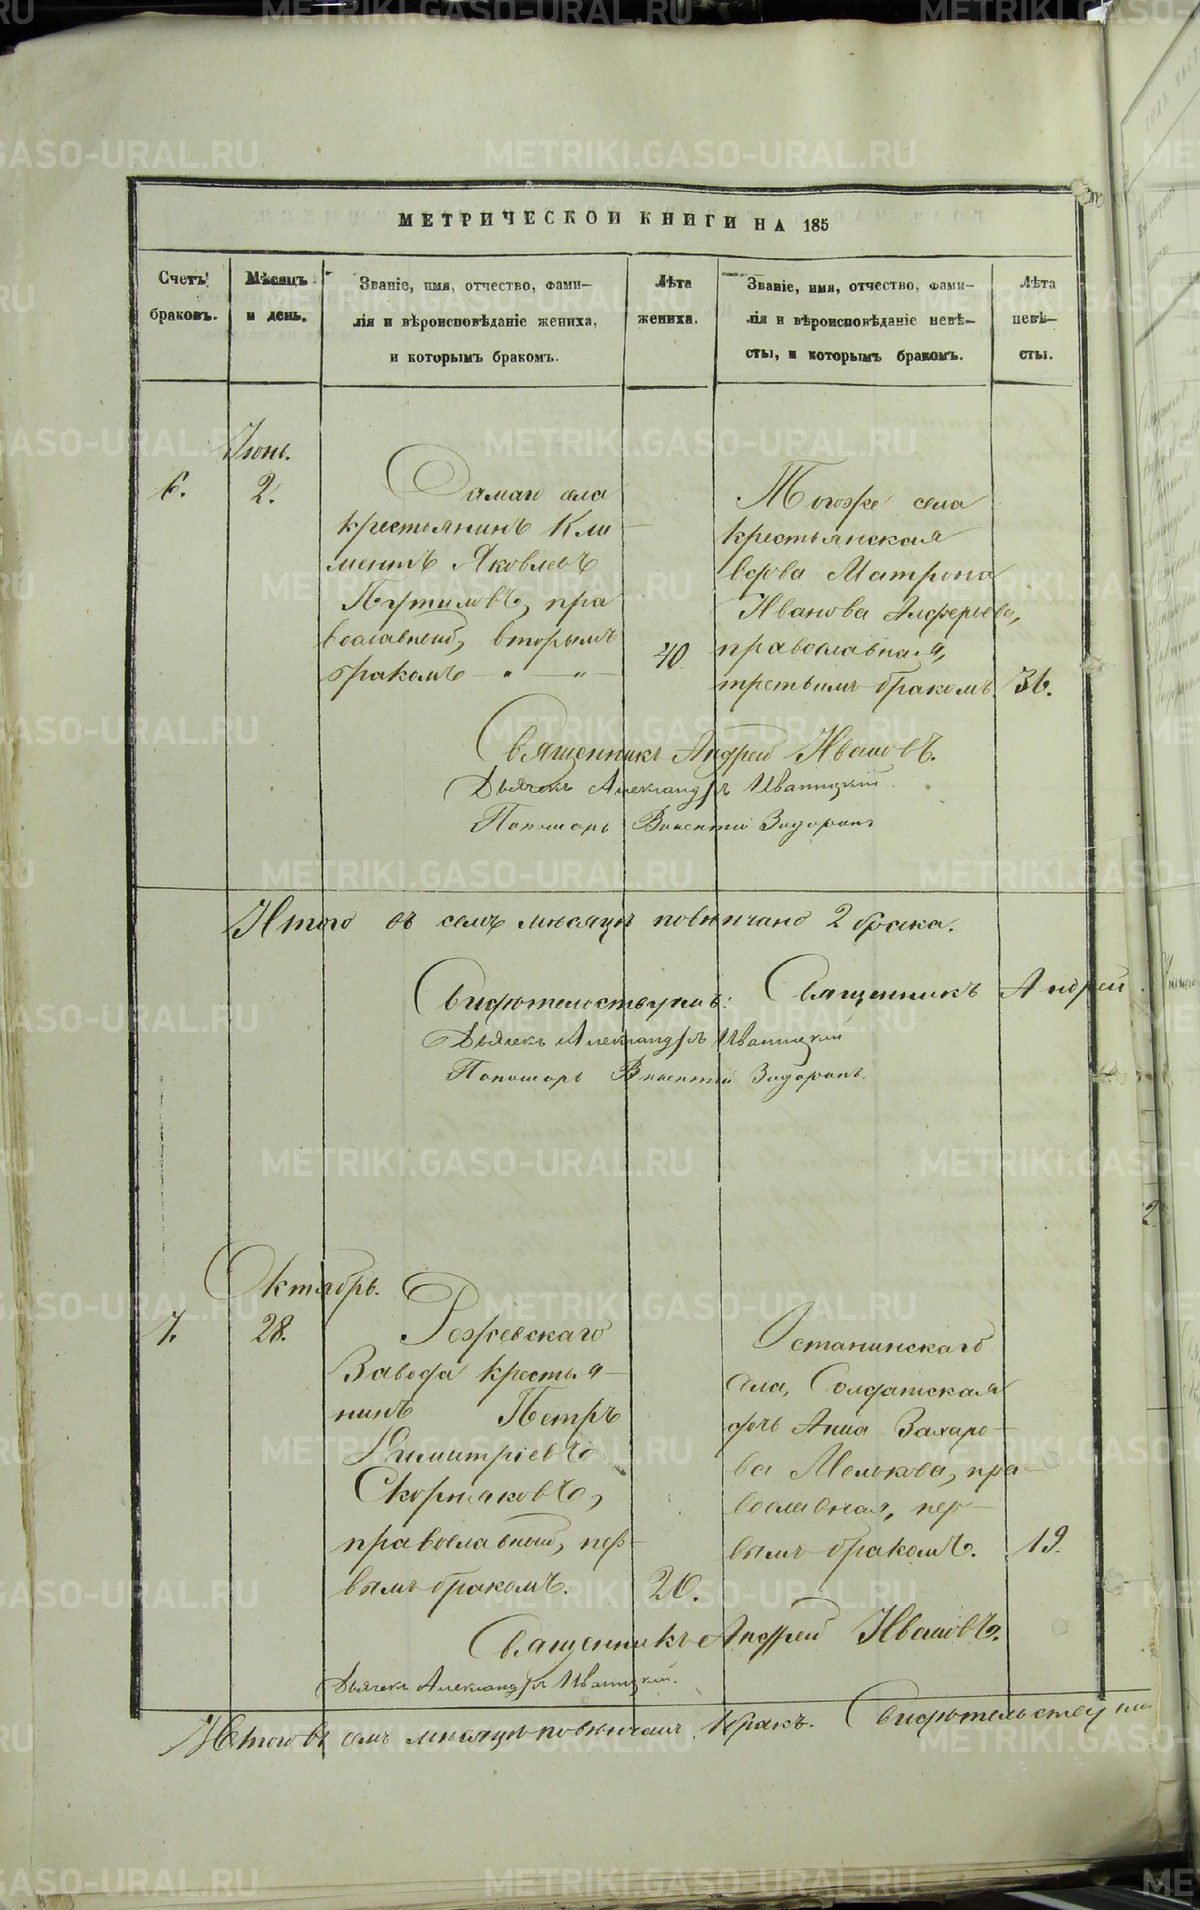 МЕТРИЧЕСКОЙ КНИГИ НА 185
Счетъ
браковъ.
Мѣсяцъ
и день.
Званіе, имя, отчество, фами-
лія и вѣроисповѣданіе жениха,
и которымъ бракомъ.
Лѣта
жениха.
Званіе, имя, отчество, фами-
лія и вѣроисповѣданіе невѣ-
сты, и которымъ бракомъ.
Лѣта
невѣ-
сты.
Іюнь.
6.
2.
Самаго села
крестьянинъ Кли
ментъ Яковлевъ
Путиловъ, пра
вославный, вторымъ
бракомъ - " - " -
40
Тогоже села
крестьянская
вдова Матрона
Иванова Алферьева,
православная,
третьимъ бракомъ.
36.
Священникъ Андрей Ивановъ.
Дьячекъ Александръ Иваницкій.
Пономарь Викентій
Итого въ семъ мѣсяцѣ повѣнчано 2 брака.
Свидѣтельствуемъ: Священникъ Андрей
Дьячекъ Александръ Иваницкій
Пономарь Викентій
Октябрь.
7.
28.
Режевскаго
Завода крестья-
нинъ Петръ
Димитріевъ
Скорняковъ,
православный, пер-
вымъ бракомъ.
20.
Останинскаго
села, Солдатская
дочь Анна Захаро-
ва Мелкова, пра-
вославная, пер-
вымъ бракомъ.
19.
Священникъ Андрей Ивановъ.
Дьячекъ Александръ Иваницкій.
Итого въ семъ мѣсяцѣ повѣнчанъ 1 бракъ.
METRIKI.GASO-URAL.RU